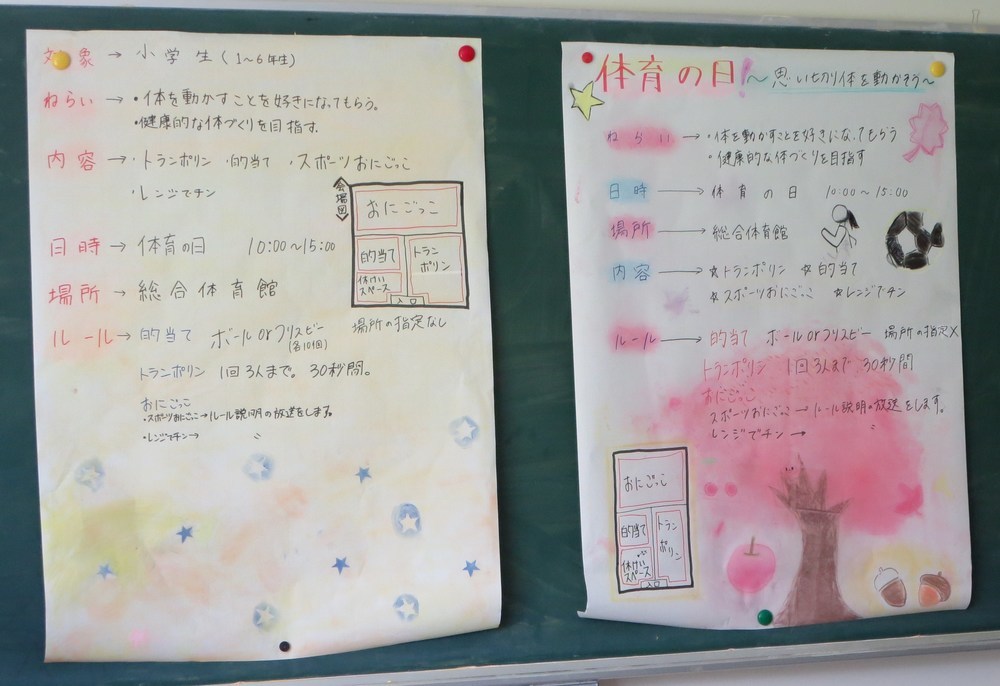 対象 → 小学生(1~6年生)
ねらい → ・体を動かすことを好きになってもらう。
・健康的な体づくりを目指す。
内容 → ・トランポリン ・的当て ・スポーツおにごっこ
・レンジでチン
会場図
おにごっこ
的当て
トランポリン
休けいスペース
入口
日時 → 体育の日 10:00~15:00
場所 → 総合体育館
ルール → 的当て ボールorフリスビー 場所の指定なし
(各10個)
トランポリン 1回3人まで。 30秒間。
おにごっこ
・スポーツおにごっこ → ルール説明の放送をします。
・レンジでチン → 〃
体育の日!~思い切り体を動かそう~
ねらい → ・体を動かすことを好きになってもらう
・健康的な体づくりを目指す
日時 → 体育の日 10:00~15:00
場所 → 総合体育館
内容 → ☆トランポリン ☆的当て
☆スポーツおにごっこ ☆レンジでチン
ルール → 的当て ボールorフリスビー 場所の指定×
トランポリン 1回3人まで 30秒間
おにごっこ
スポーツおにごっこ → ルール説明の放送をします。
レンジでチン → 〃
おにごっこ
的当て
トランポリン
休けいスペース
入口